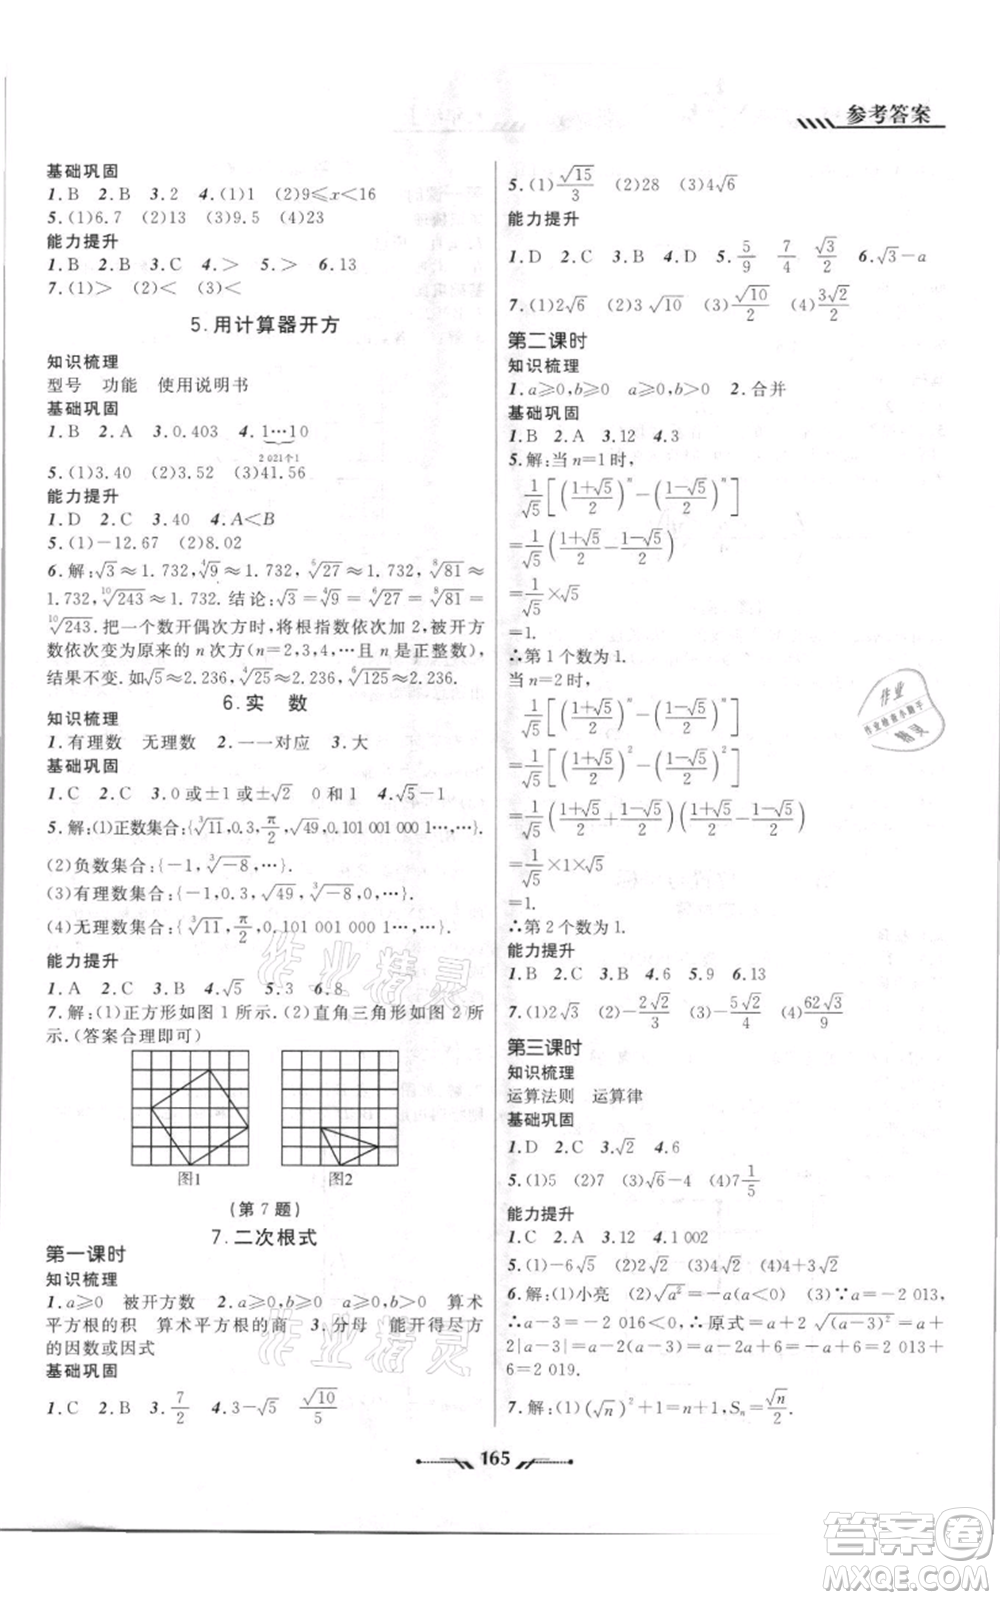 参考答案
基础巩固
1.B 2.B 3.2 4.(1)1 (2)9≤x<16
5.(1)6.7 (2)15.9 (3)9.5 (4)23
能力提升
1.B 2.B 3.C 4.> 5.> 6.13
7.(1)> (2)< (3)<
5.用计算器开方
知识梳理
型号 功能 使用说明书
基础巩固
1.B 2.A 3.0.403 4.1…10
2 021个1
5.(1)3.40 (2)2.26 (3)41.56
能力提升
1.D 2.C 3.40 4.A<B
5.(1)-12.67 (2)8.02
6.解:√3≈1.732,⁴√9≈1.732,⁶√27≈1.732,⁸√81≈
1.732,¹⁰√243≈1.732.结论:√3=⁴√9=⁶√27=⁸√81=
¹⁰√243.把一个数开偶次方时,将根指数依次加 2,被开方
数依次变为原来的 n 次方(n=2,3,4,…且 n 是正整数),
结果不变.如√5≈2.236,⁴√25≈2.236,⁶√125≈2.236.
6.实 数
知识梳理
1.有理数 无理数 2.一一对应 3.大
基础巩固
1.C 2.C 3.0或±1或±√2 0和1 4.√5-1
5.解:(1)正数集合:{³√11,0.3,π/2,√49,0.101 001 000 1…,…}.
(2)负数集合:{-1,³√-8,…}.
(3)有理数集合:{-1,0.3,√49,³√-8,0,…}.
(4)无理数集合:{³√11,π/2,0.101 001 000 1…,…}.
能力提升
1.A 2.C 3.B 4.√5 5.3 6.8
7.解:(1)正方形如图 1 所示.(2)直角三角形如图 2 所
示.(答案合理即可)
图1 图2
(第 7 题)
7.二次根式
第一课时
知识梳理
1.a≥0 被开方数 2.a≥0,b≥0 a≥0,b>0 算术
平方根的积 算术平方根的商 3.分母 能开得尽方
的因数或因式
基础巩固
1.C 2.B 3.7/2 4.3-√5 √10/5
5.(1)√15/3 (2)28 (3)4√6
能力提升
1.D 2.C 3.B 4.D 5.5/9 7/4 √3/2 6.√3-a
7.(1)2√6 (2)10 (3)√10/2 (4)3√2/2
第二课时
知识梳理
1.a≥0,b≥0 a≥0,b>0 2.合并
基础巩固
1.B 2.A 3.12 4.3
5.解:当 n=1 时,
1/√5[((1+√5)/2)ⁿ-((1-√5)/2)ⁿ]
=1/√5((1+√5)/2-(1-√5)/2)
=1/√5×√5
=1.
∴第 1 个数为 1.
当 n=2 时,
1/√5[((1+√5)/2)ⁿ-((1-√5)/2)ⁿ]
=1/√5[((1+√5)/2)²-((1-√5)/2)²]
=1/√5((1+√5)/2+(1-√5)/2)((1+√5)/2-(1-√5)/2)
=1/√5×1×√5
=1.
∴第 2 个数为 1.
能力提升
1.B 2.C 3.B 4.6 5.9 6.13
7.(1)2√3 (2)-2√2/3 (3)-5√2/4 (4)62√3/9
第三课时
知识梳理
运算法则 运算律
基础巩固
1.D 2.C 3.√2 4.6
5.(1)5 (2)1 (3)√6-4 (4)7 1/5
能力提升
1.C 2.A 3.12 4.1 002
5.(1)-6√5 (2)2√2 (3)2√2 (4)4+3√2
6.解:(1)小亮 (2)√a²=-a(a<0) (3)∵a=-2 013,
∴a-3=-2 016<0,∴原式=a+2√(a-3)²=a+
2|a-3|=a-2(a-3)=a-2a+6=-a+6=2 013+
6=2 019.
7.解:(1)(√n)²+1=n+1,Sₙ=√n/2.
165
作业
作业检查小助手
精灵
作业精灵
作业精灵
答案卷
MXQE.COM